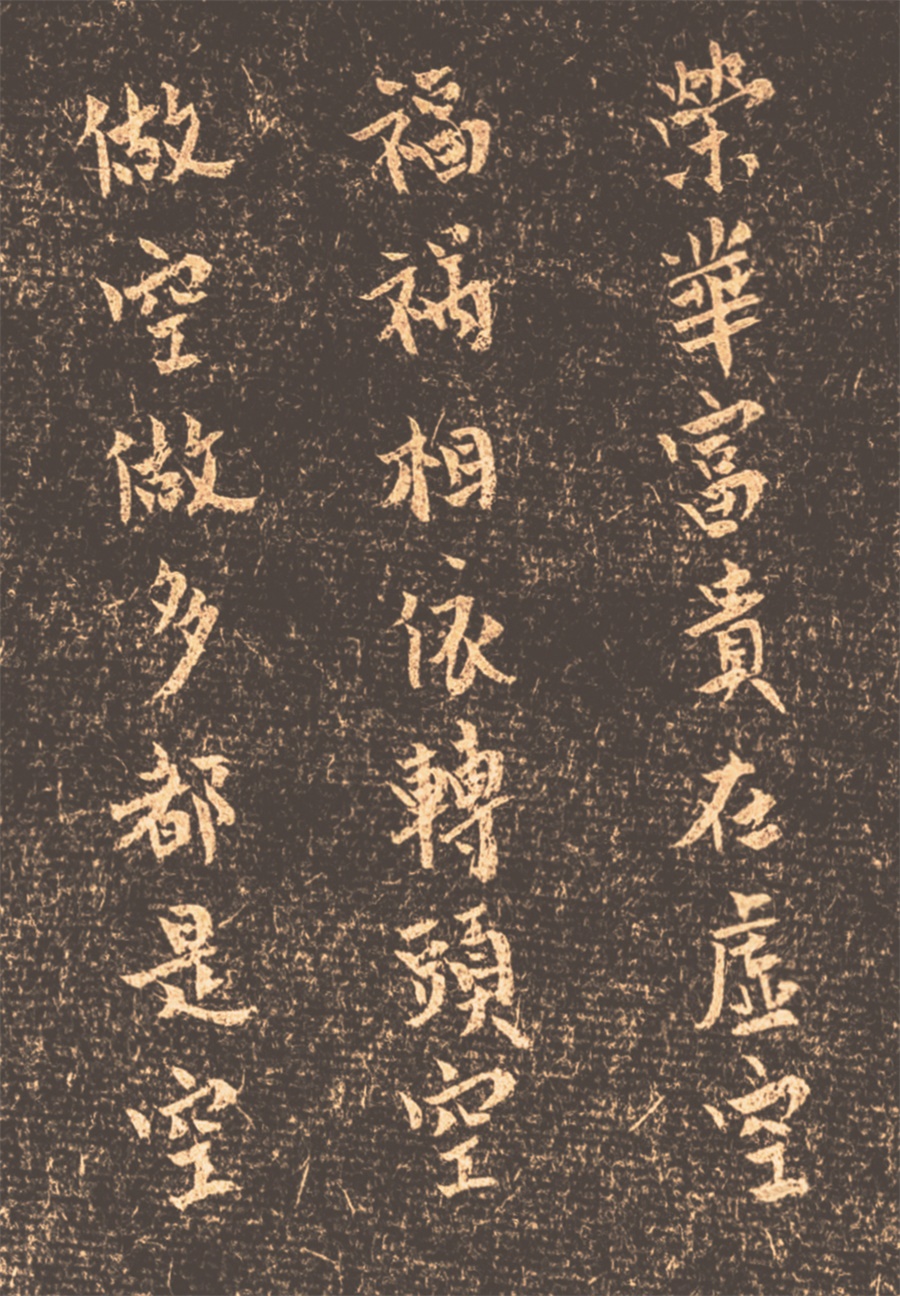 榮華富貴在虛空
福禍相依轉頭空
做空做多都是空